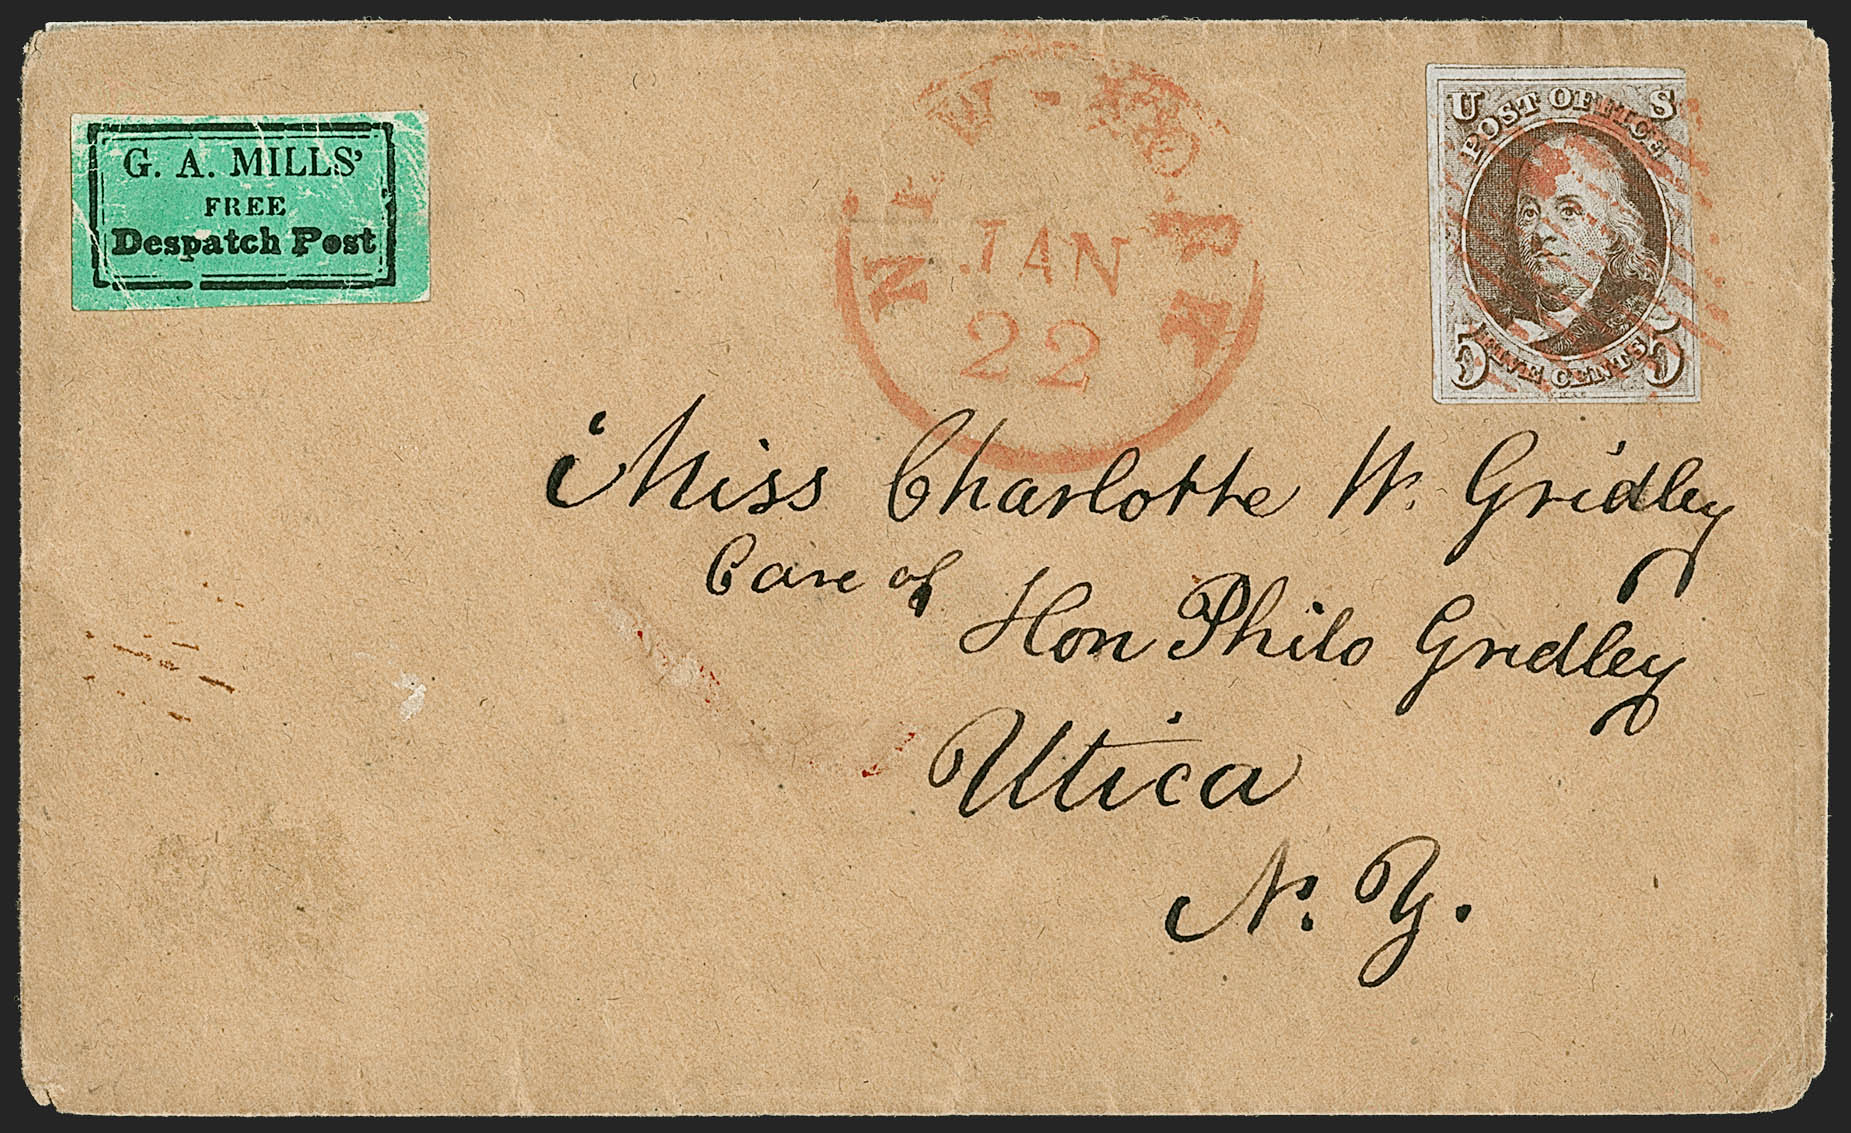 G. A. MILLS'
FREE
Despatch Post
NEW-YORK
JAN
22
U S
POST OFFICE
5 FIVE CENTS 5
Miss Charlotte W. Gridley
Care of
Hon Philo Gridley
Utica
N. Y.